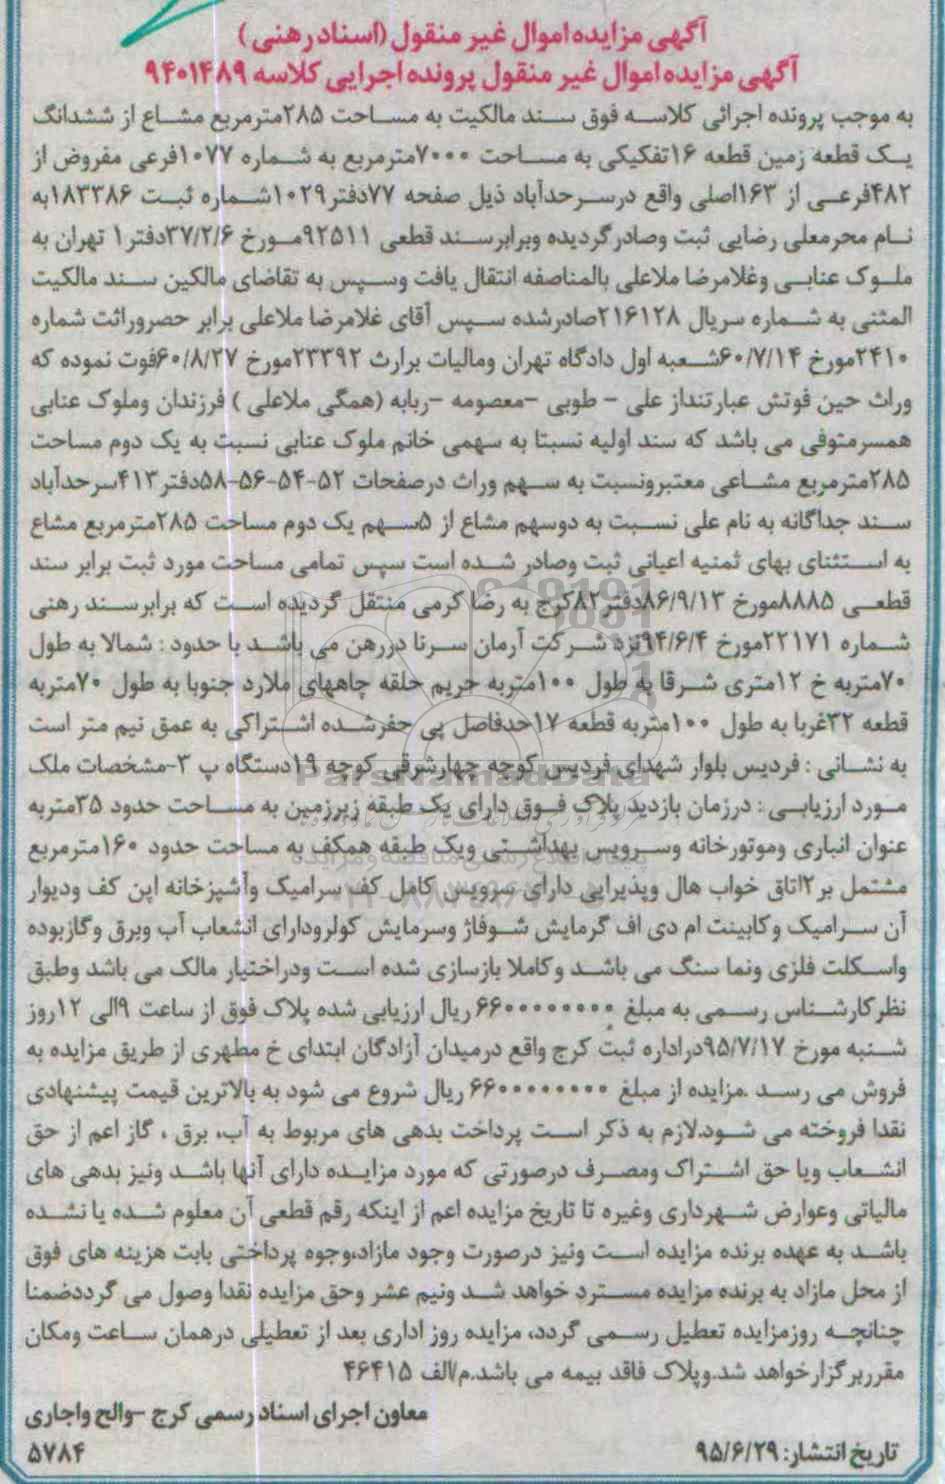 آگهی مزایده اموال غیر منقول (اسناد رهنی)
آگهی مزایده اموال غیر منقول پرونده اجرایی کلاسه ۹۴۰۱۴۸۹
به موجب پرونده اجرائی کلاسه فوق سند مالکیت به مساحت ۲۸۵مترمربع مشاع از ششدانگ
یک قطعه زمین قطعه ۱۶تفکیکی به مساحت ۷۰۰۰مترمربع به شماره ۱۰۷۷فرعی مفروض از
۴۸۲فرعی از ۱۶۳اصلی واقع درسرحدآباد ذیل صفحه ۷۷دفتر۱۰۲۹شماره ثبت ۱۸۳۳۸۶به
نام محرمعلی رضایی ثبت وصادرگردیده وبرابرسند قطعی ۹۲۵۱۱مورخ ۳۷/۲/۶دفتر۱ تهران به
ملوک عنابی وغلامرضا ملاعلی بالمناصفه انتقال یافت وسپس به تقاضای مالکین سند مالکیت
المثنی به شماره سریال ۲۱۶۱۲۸صادرشده سپس آقای غلامرضا ملاعلی برابر حصروراثت شماره
۲۴۱۰مورخ ۶۰/۷/۱۴شعبه اول دادگاه تهران ومالیات برارث ۲۳۳۹۲مورخ ۶۰/۸/۲۷فوت نموده که
وراث حین فوتش عبارتنداز علی – طوبی –معصومه –ربابه (همگی ملاعلی ) فرزندان وملوک عنابی
همسرمتوفی می باشد که سند اولیه نسبتا به سهمی خانم ملوک عنابی نسبت به یک دوم مساحت
۲۸۵مترمربع مشاعی معتبرونسبت به سهم وراث درصفحات ۵۲-۵۴-۵۶-۵۸دفتر۴۱۳سرحدآباد
سند جداگانه به نام علی نسبت به دوسهم مشاع از ۵سهم یک دوم مساحت ۲۸۵مترمربع مشاع
به استثنای بهای ثمنیه اعیانی ثبت وصادر شده است سپس تمامی مساحت مورد ثبت برابر سند
قطعی ۸۸۸۵مورخ ۸۶/۹/۱۳دفتر۸۲کرج به رضا کرمی منتقل گردیده است که برابرسند رهنی
شماره ۲۲۱۷۱مورخ ۹۴/۶/۴نزد شرکت آرمان سرنا دررهن می باشد با حدود : شمالا به طول
۷۰متربه خ ۱۲متری شرقا به طول ۱۰۰متربه حریم حلقه چاههای ملارد جنوبا به طول ۷۰متربه
قطعه ۳۲غربا به طول ۱۰۰متربه قطعه ۱۷حدفاصل پی حفرشده اشتراکی به عمق نیم متر است
به نشانی : فردیس بلوار شهدای فردیس کوچه چهارشرقی کوچه ۱۹دستگاه پ ۳-مشخصات ملک
مورد ارزیابی : درزمان بازدید پلاک فوق دارای یک طبقه زیرزمین به مساحت حدود ۳۵متربه
عنوان انباری وموتورخانه وسرویس بهداشتی ویک طبقه همکف به مساحت حدود ۱۶۰مترمربع
مشتمل بر۲اتاق خواب هال وپذیرایی دارای سرویس کامل کف سرامیک وآشپزخانه اپن کف ودیوار
آن سرامیک وکابینت ام دی اف گرمایش شوفاژ وسرمایش کولرودارای انشعاب آب وبرق وگازبوده
واسکلت فلزی ونما سنگ می باشد وکاملا بازسازی شده است ودراختیار مالک می باشد وطبق
نظرکارشناس رسمی به مبلغ ۶۶۰۰۰۰۰۰۰۰ ریال ارزیابی شده پلاک فوق از ساعت ۹الی ۱۲روز
شنبه مورخ ۹۵/۷/۱۷دراداره ثبت کرج واقع درمیدان آزادگان ابتدای خ مطهری از طریق مزایده به
فروش می رسد .مزایده از مبلغ ۶۶۰۰۰۰۰۰۰۰ ریال شروع می شود به بالاترین قیمت پیشنهادی
نقدا فروخته می شود.لازم به ذکر است پرداخت بدهی های مربوط به آب، برق ، گاز اعم از حق
انشعاب ویا حق اشتراک ومصرف درصورتی که مورد مزایده دارای آنها باشد ونیز بدهی های
مالیاتی وعوارض شهرداری وغیره تا تاریخ مزایده اعم از اینکه رقم قطعی آن معلوم شده یا نشده
باشد به عهده برنده مزایده است ونیز درصورت وجود مازاد،وجوه پرداختی بابت هزینه های فوق
از محل مازاد به برنده مزایده مسترد خواهد شد ونیم عشر وحق مزایده نقدا وصول می گرددضمنا
چنانچه روزمزایده تعطیل رسمی گردد، مزایده روز اداری بعد از تعطیلی درهمان ساعت ومکان
مقرربرگزارخواهد شد.وپلاک فاقد بیمه می باشد.م/الف ۴۶۴۱۵
معاون اجرای اسناد رسمی کرج –والح واجاری
تاریخ انتشار: ۹۵/۶/۲۹
۵۷۸۴
ParsNamadData